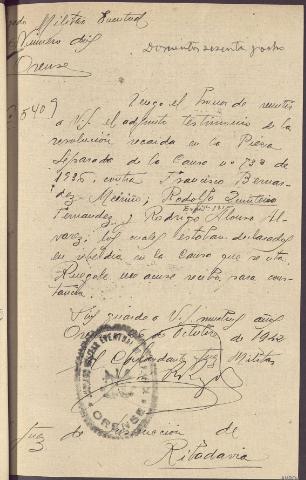 Militar Eventual
Número diez
Orense
Doscientos sesenta y ocho
5409
Tengo el honor de remitir
a V.S. el adjunto testimonio de la
resolución recaida en la Pieza
Separada de la Causa nº 733 de
1936 contra Francisco Bernar-
dez Meriño, Rodolfo Quinteiro
Fernandez y Rodrigo Alonso Al-
varez, los cuales estaban declarados
en rebeldia en la Causa que se cita.
Ruegole me acuse recibo para cons-
tancia.
Dios guarde a V.S. muchos años
Orense 6 de Octubre de 1942
El Comandante Juez Militar
JUZGADO MILITAR EVENTUAL
ORENSE
Juez de Instrucción de
Ribadavia